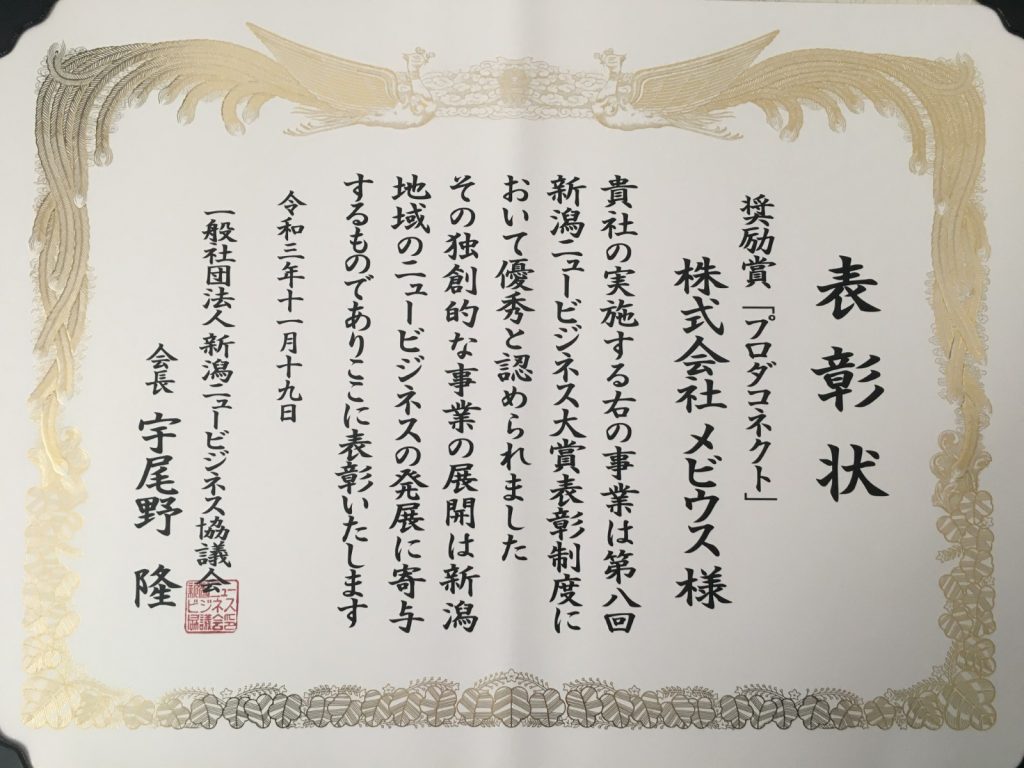 表彰状
奨励賞「プロダコネクト」
株式会社 メビウス 様
貴社の実施する右の事業は第八回
新潟ニュービジネス大賞表彰制度に
おいて優秀と認められました
その独創的な事業の展開は新潟
地域のニュービジネスの発展に寄与
するものでありここに表彰いたします
令和三年十一月十九日
一般社団法人 新潟ニュービジネス協議会
会長 宇尾野 隆